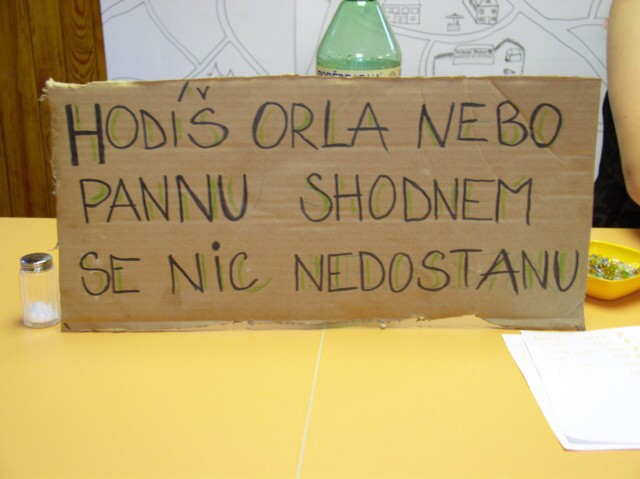 HODÍŠ ORLA NEBO
PANNU SHODNEM
SE NIC NEDOSTANU